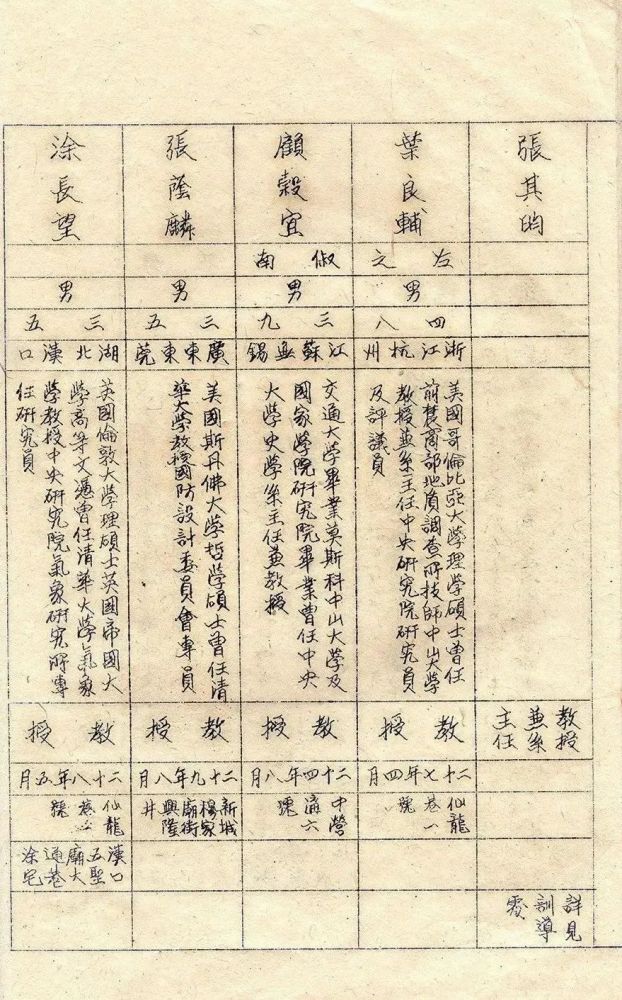 張其昀
教授
兼系
主任
詳見
訓導
處
葉良輔
左之
男
四八
浙江杭州
美國哥倫比亞大學理學碩士曾任
前農商部地質調查所技師中山大學
教授兼系主任中央研究院研究員
及評議員
教授
二十七年四月
仙龍
巷一
號
顧穀宜
俶南
男
三九
江蘇無錫
交通大學畢業莫斯科中山大學及
國家學院研究院畢業曾任中央
大學史學系主任兼教授
教授
二十四年八月
中營
溝六
號
張蔭麟
男
三五
廣東東莞
美國斯丹佛大學哲學碩士曾任清
華大學教授國防設計委員會專員
教授
二十九年八月
新城
楊家
廟街
興隆
井
涂長望
男
三五
湖北漢口
英國倫敦大學理碩士英國帝國大
學高等文憑曾任清華大學氣象
學教授中央研究院氣象研究所專
任研究員
教授
二十八年五月
仙龍
巷
號
漢口
五聖
廟大
通巷
涂宅